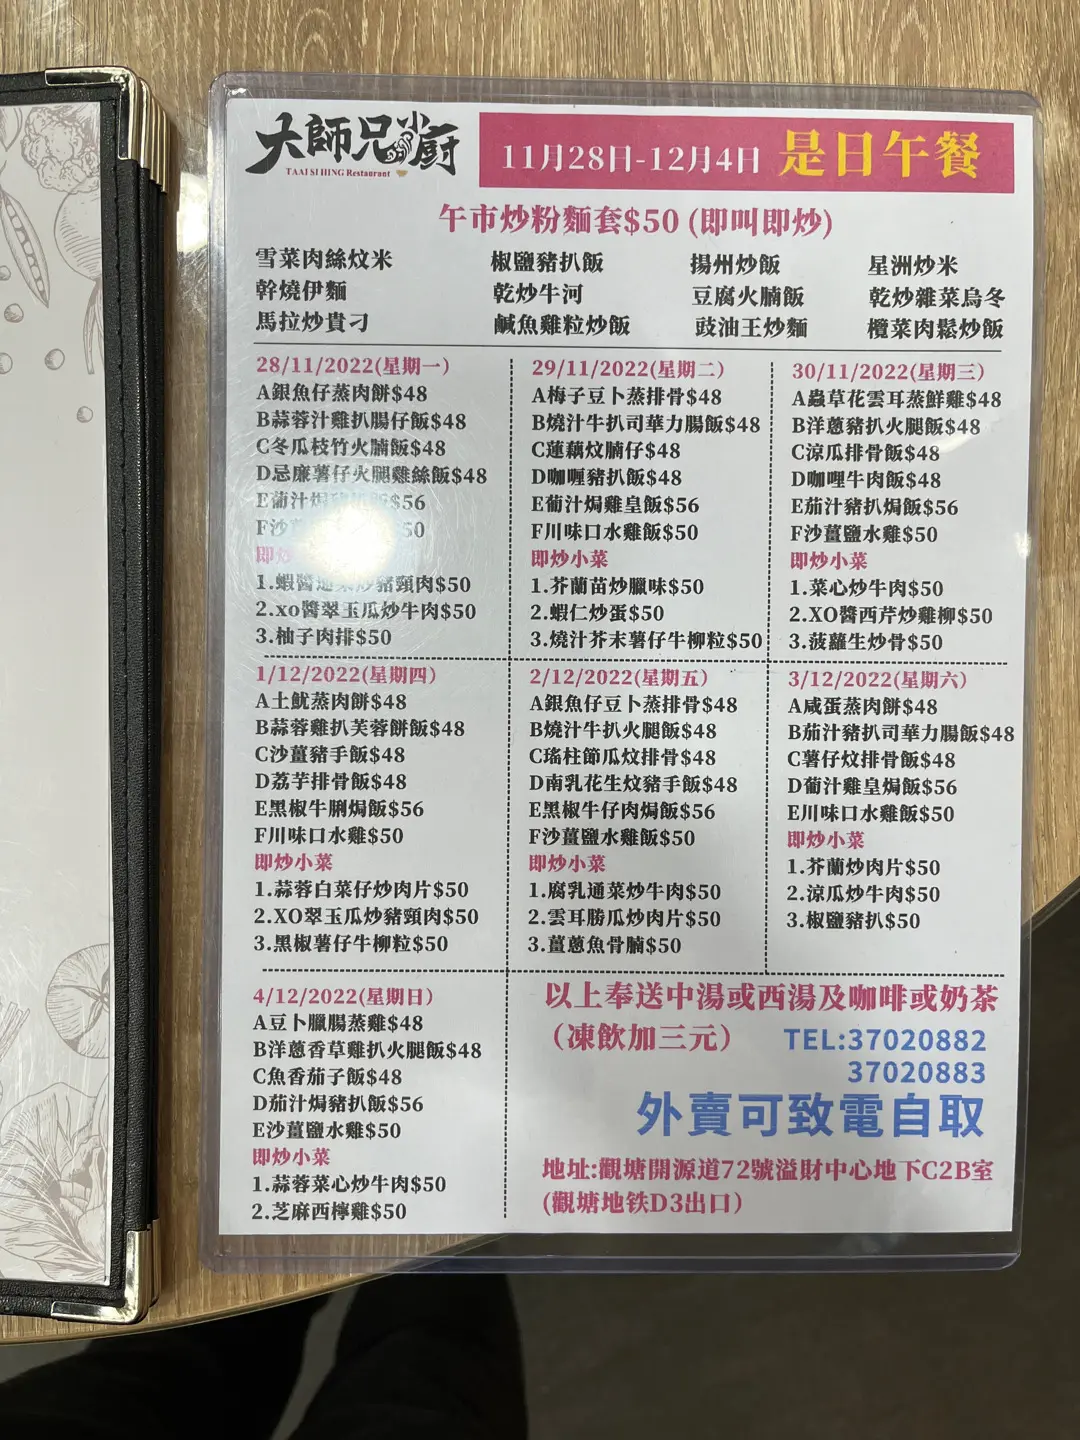 大師兄小廚
TAAI SI HING Restaurant
11月28日-12月4日 是日午餐
午市炒粉麵套$50 (即叫即炒)
雪菜肉絲炆米 椒鹽豬扒飯 揚州炒飯 星洲炒米
幹燒伊麵 乾炒牛河 豆腐火腩飯 乾炒雜菜烏冬
馬拉炒貴刁 鹹魚雞粒炒飯 豉油王炒麵 欖菜肉鬆炒飯
28/11/2022(星期一)
A銀魚仔蒸肉餅$48
B蒜蓉汁雞扒腸仔飯$48
C冬瓜枝竹火腩飯$48
D忌廉薯仔火腿雞絲飯$48
E葡汁焗 飯$56
F沙 50
即炒
1.蝦醬 炒豬頸肉$50
2.xo醬翠玉瓜炒牛肉$50
3.柚子肉排$50
29/11/2022(星期二)
A梅子豆卜蒸排骨$48
B燒汁牛扒司華力腸飯$48
C蓮藕炆腩仔$48
D咖喱豬扒飯$48
E葡汁焗雞皇飯$56
F川味口水雞飯$50
即炒小菜
1.芥蘭苗炒臘味$50
2.蝦仁炒蛋$50
3.燒汁芥末薯仔牛柳粒$50
30/11/2022(星期三)
A蟲草花雲耳蒸鮮雞$48
B洋蔥豬扒火腿飯$48
C涼瓜排骨飯$48
D咖哩牛肉飯$48
E茄汁豬扒焗飯$56
F沙薑鹽水雞$50
即炒小菜
1.菜心炒牛肉$50
2.XO醬西芹炒雞柳$50
3.菠蘿生炒骨$50
1/12/2022(星期四)
A土魷蒸肉餅$48
B蒜蓉雞扒芙蓉餅飯$48
C沙薑豬手飯$48
D荔芋排骨飯$48
E黑椒牛脷焗飯$56
F川味口水雞$50
即炒小菜
1.蒜蓉白菜仔炒肉片$50
2.XO翠玉瓜炒豬頸肉$50
3.黑椒薯仔牛柳粒$50
2/12/2022(星期五)
A銀魚仔豆卜蒸排骨$48
B燒汁牛扒火腿飯$48
C瑤柱節瓜炆排骨$48
D南乳花生炆豬手飯$48
E黑椒牛仔肉焗飯$56
F沙薑鹽水雞飯$50
即炒小菜
1.腐乳通菜炒牛肉$50
2.雲耳勝瓜炒肉片$50
3.薑蔥魚骨腩$50
3/12/2022(星期六)
A咸蛋蒸肉餅$48
B茄汁豬扒司華力腸飯$48
C薯仔炆排骨飯$48
D葡汁雞皇焗飯$56
E川味口水雞飯$50
即炒小菜
1.芥蘭炒肉片$50
2.涼瓜炒牛肉$50
3.椒鹽豬扒$50
4/12/2022(星期日)
A豆卜臘腸蒸雞$48
B洋蔥香草雞扒火腿飯$48
C魚香茄子飯$48
D茄汁焗豬扒飯$56
E沙薑鹽水雞$50
即炒小菜
1.蒜蓉菜心炒牛肉$50
2.芝麻西檸雞$50
以上奉送中湯或西湯及咖啡或奶茶
(凍飲加三元) TEL:37020882
37020883
外賣可致電自取
地址:觀塘開源道72號溢財中心地下C2B室
(觀塘地铁D3出口)